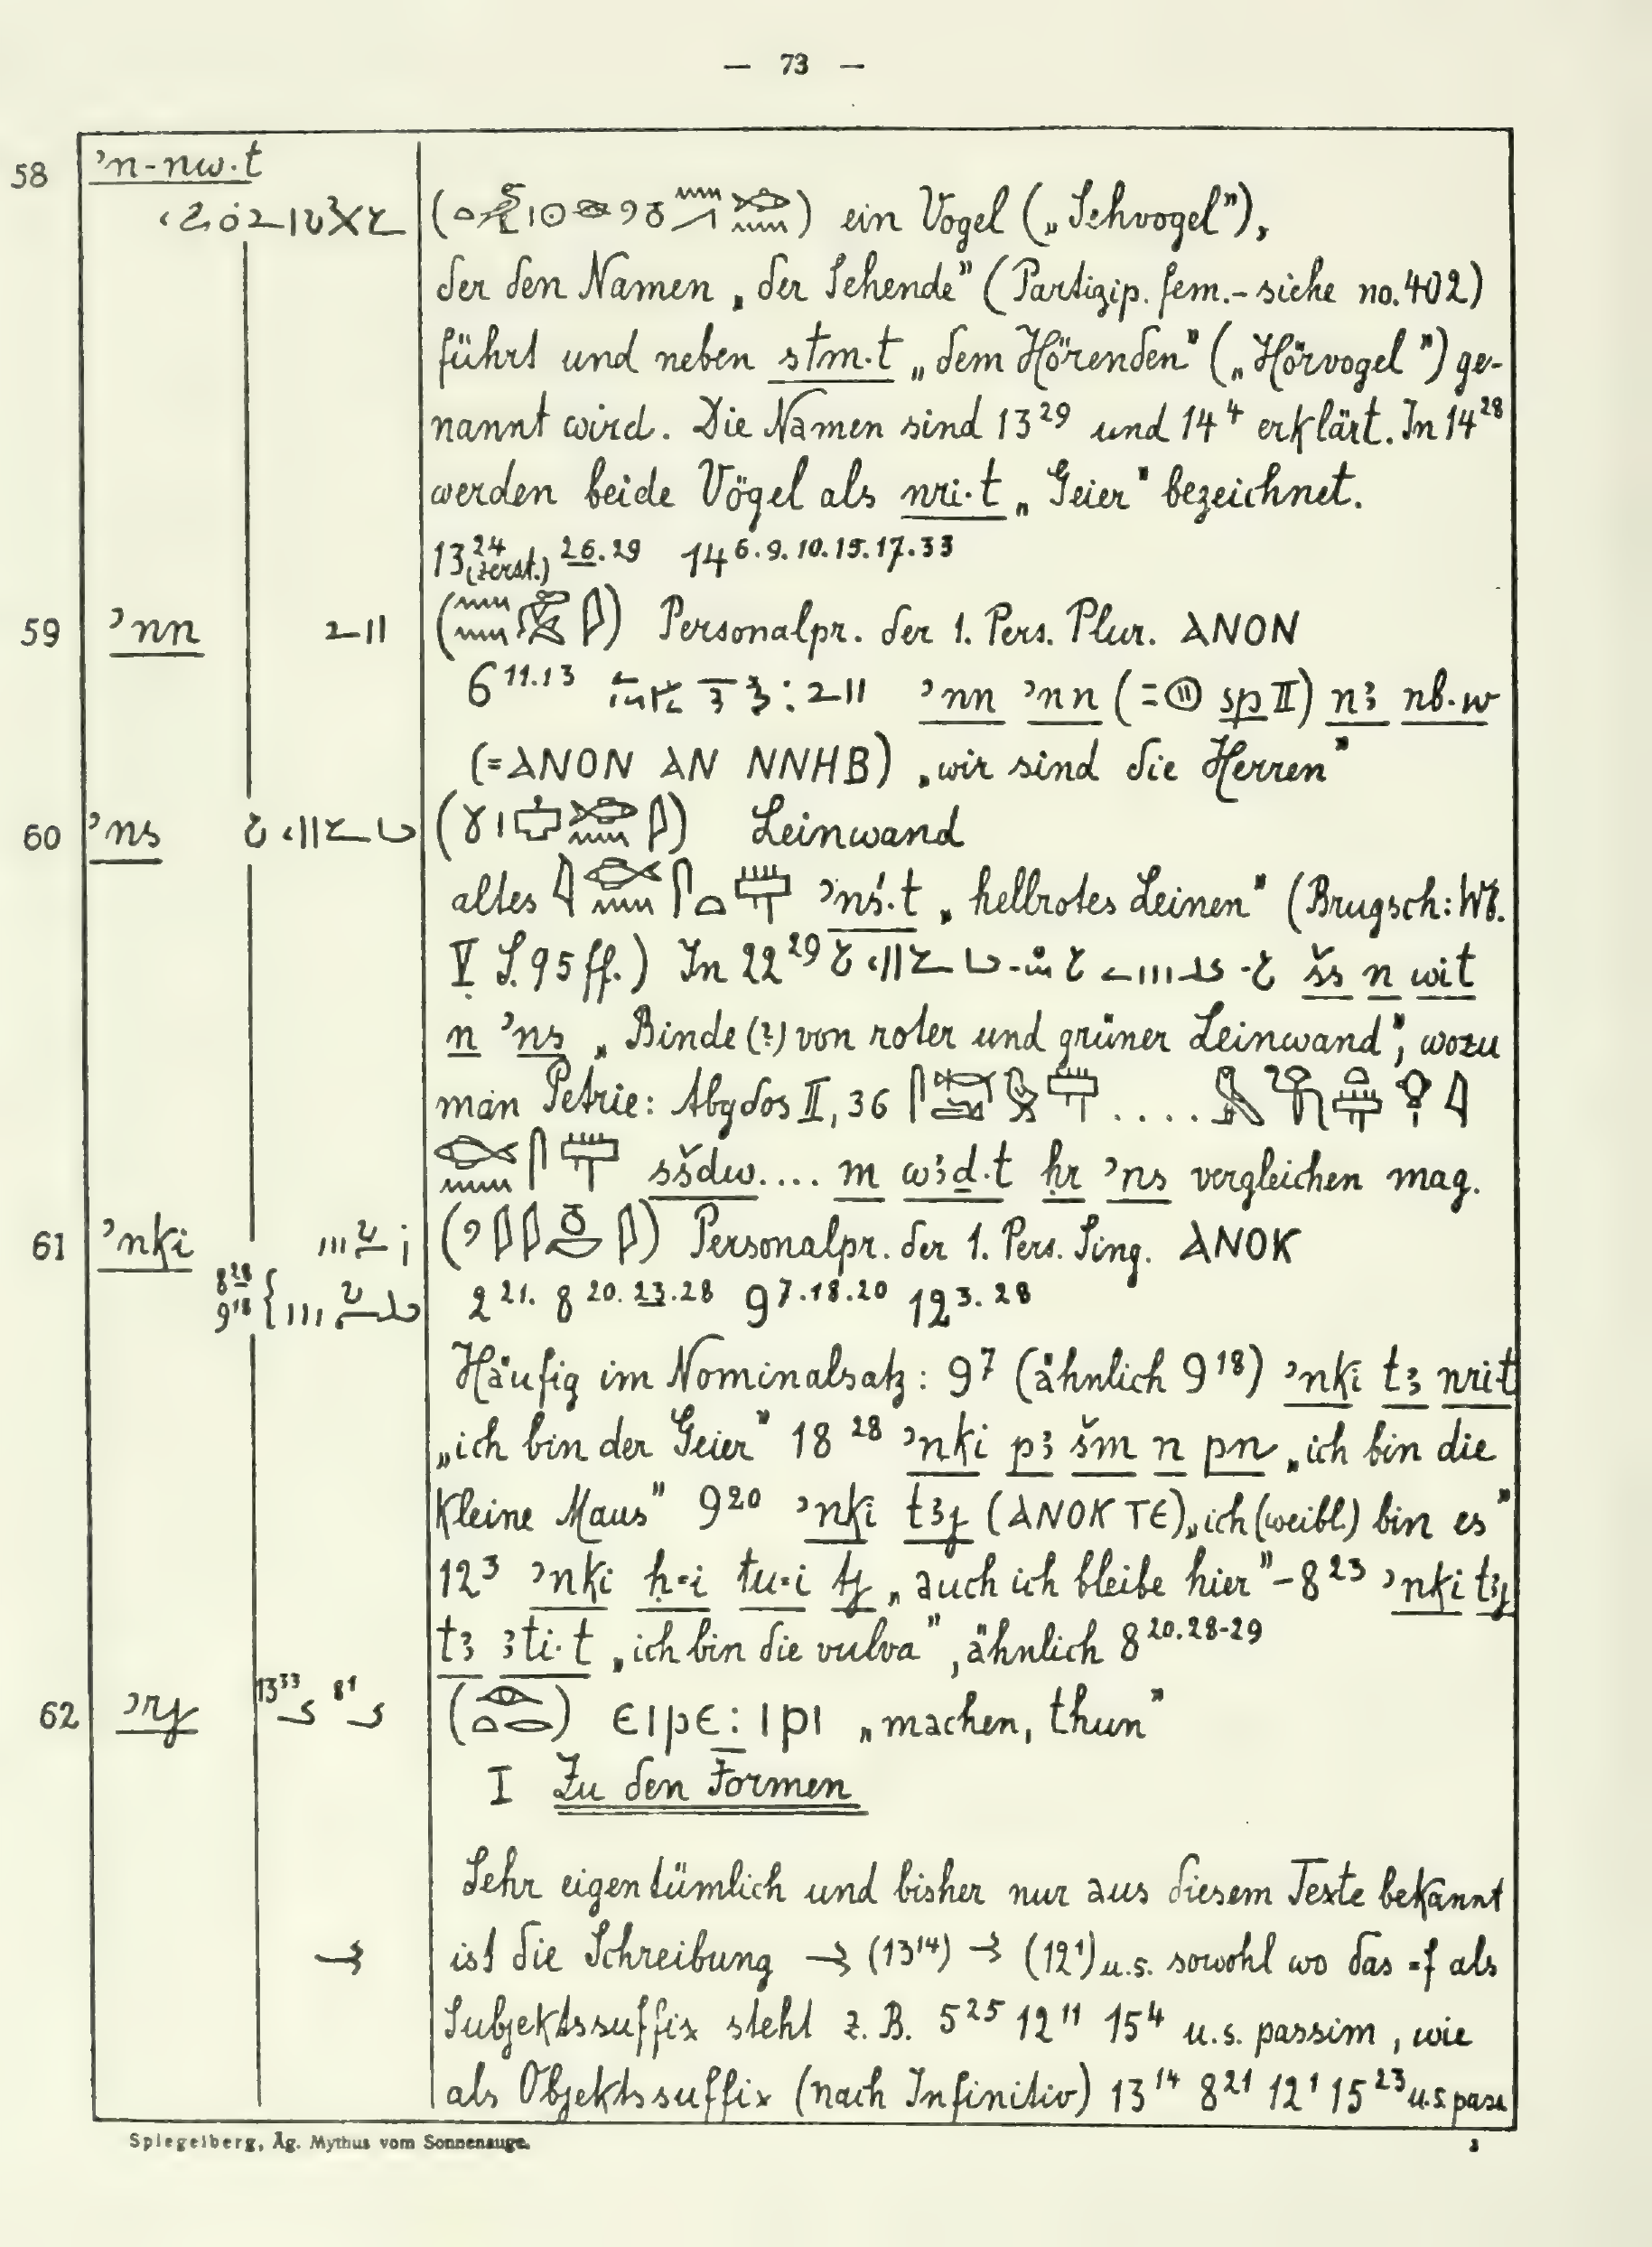 — 73 —
58 ’n-nw·t
( ) ein Vogel („Sehvogel”),
der den Namen „der Sehende” (Partizip. fem. - siehe no. 402)
führt und neben stm·t „dem Hörenden” („Hörvogel”) ge-
nannt wird. Die Namen sind 13²⁹ und 14⁴ erklärt. In 14²⁸
werden beide Vögel als nri·t „Geier” bezeichnet.
13²⁴ (zerst.) ²⁶·²⁹ 14⁶·⁹·¹⁰·¹⁵·¹⁷·³³
59 ’nn ( ) Personalpr. der 1. Pers. Plur. ⲀⲚⲞⲚ
6¹¹·¹³ ’nn ’nn (= sp II) nꜣ nb·w
(=ⲀⲚⲞⲚ ⲀⲚ ⲚⲚⲎⲂ) „wir sind die Herren”
60 ’ns ( ) Leinwand
altes ’nś·t „hellrotes Leinen” (Brugsch: Wb.
V S. 95 ff.) In 22²⁹ šs n wit
n ’ns „Binde (?) von roter und grüner Leinwand”, wozu
man Petrie: Abydos II, 36 ....
sšdw.... m wꜣḏ·t ḥr ’ns vergleichen mag.
61 ’nki ( ) Personalpr. der 1. Pers. Sing. ⲀⲚⲞⲔ
8²⁸ 9¹⁸ { 2²¹· 8²⁰·²³·²⁸ 9⁷·¹⁸·²⁰ 12³·²⁸
Häufig im Nominalsatz: 9⁷ (ähnlich 9¹⁸) ’nki tꜣ nri·t
„ich bin der Geier” 18²⁸ ’nki pꜣ šm n pn „ich bin die
kleine Maus” 9²⁰ ’nki tꜣj (ⲀⲚⲞⲔ ⲦⲈ) „ich (weibl.) bin es”
12³ ’nki ḥ=i tu=i tj „auch ich bleibe hier” – 8²³ ’nki tꜣj
tꜣ ꜣti·t „ich bin die vulva”, ähnlich 8²⁰·²⁸⁻²⁹
62 ’rj 13³³ 8¹ ( ) ⲈⲒⲢⲈ: ⲒⲢⲒ „machen, thun”
I Zu den Formen
Sehr eigentümlich und bisher nur aus diesem Texte bekannt
ist die Schreibung (13¹⁴) (12¹) u.s. sowohl wo das =f als
Subjektssuffix steht z. B. 5²⁵ 12¹¹ 15⁴ u.s. passim, wie
als Objektssuffix (nach Infinitiv) 13¹⁴ 8²¹ 12¹ 15²³ u.s. pass
Spiegelberg, Äg. Mythus vom Sonnenauge.